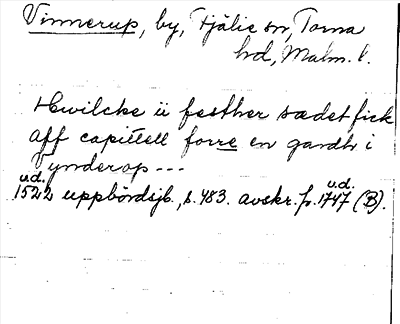 Vinnerup, by, Fjälie sn, Torna
hd, Malm. l.
Hwilcke ii festher sædet fick
aff capittell forre en gardh i
Vynderop ---
u.d. u.d.
1522 uppbördsjb., s. 483. avskr. fr. 1747 (B).